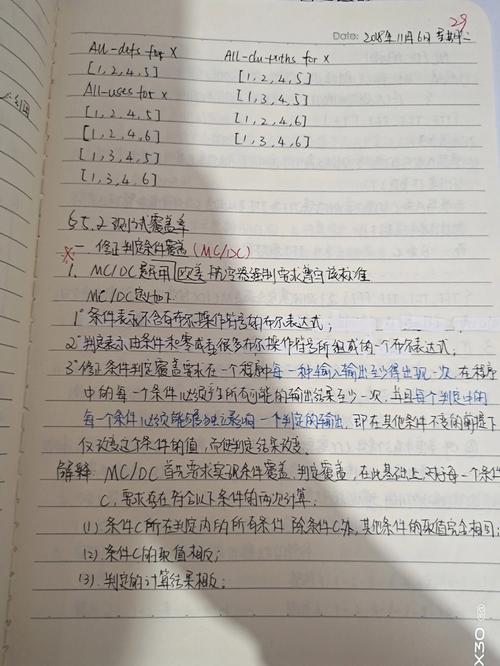 29
Date: 2018年11月6日 星期二
All-defs for x
[1,2,4,5]
All-uses for x
[1,2,4,5]
[1,2,4,6]
[1,3,4,5]
[1,3,4,6]
All-du-paths for x
[1,2,4,5]
[1,3,4,5]
[1,2,4,6]
[1,3,4,6]
§5.2 逻辑式覆盖率
一. 修正判定条件覆盖(MC/DC)
1. MC/DC 欧美 航空器强制要求 该标准
MC/DC定义如下
1° 条件表示不含有布尔操作符号的布尔表达式;
2° 判定表示由条件和零或者很多布尔操作符号所组成的一个布尔表达式;
3° 修正条件判定覆盖要求在一个程序中每一种输入输出至少得出现一次,在程序
中的每一个条件必须产生所有可能的输出结果至少一次,并且每个判定中的
每一个条件必须能够独立影响一个判定的输出,即在其他条件不变的前提下
仅改变这个条件的值,而使判定结果改变.
解释: MC/DC首先要求实现条件覆盖、判定覆盖,在此基础上,对于每一个条件
C,要求存在符合以下条件的两次计算:
(1) 条件C所在判定内的所有条件,除条件C外,其他条件的取值完全相同;
(2). 条件C的取值相反;
(3). 判定的计算结果相反;
X30